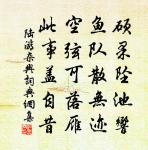 硕果坠池响
鱼队散无迹
空弦可落雁
此事盖自昔
陆游杂兴词典网集